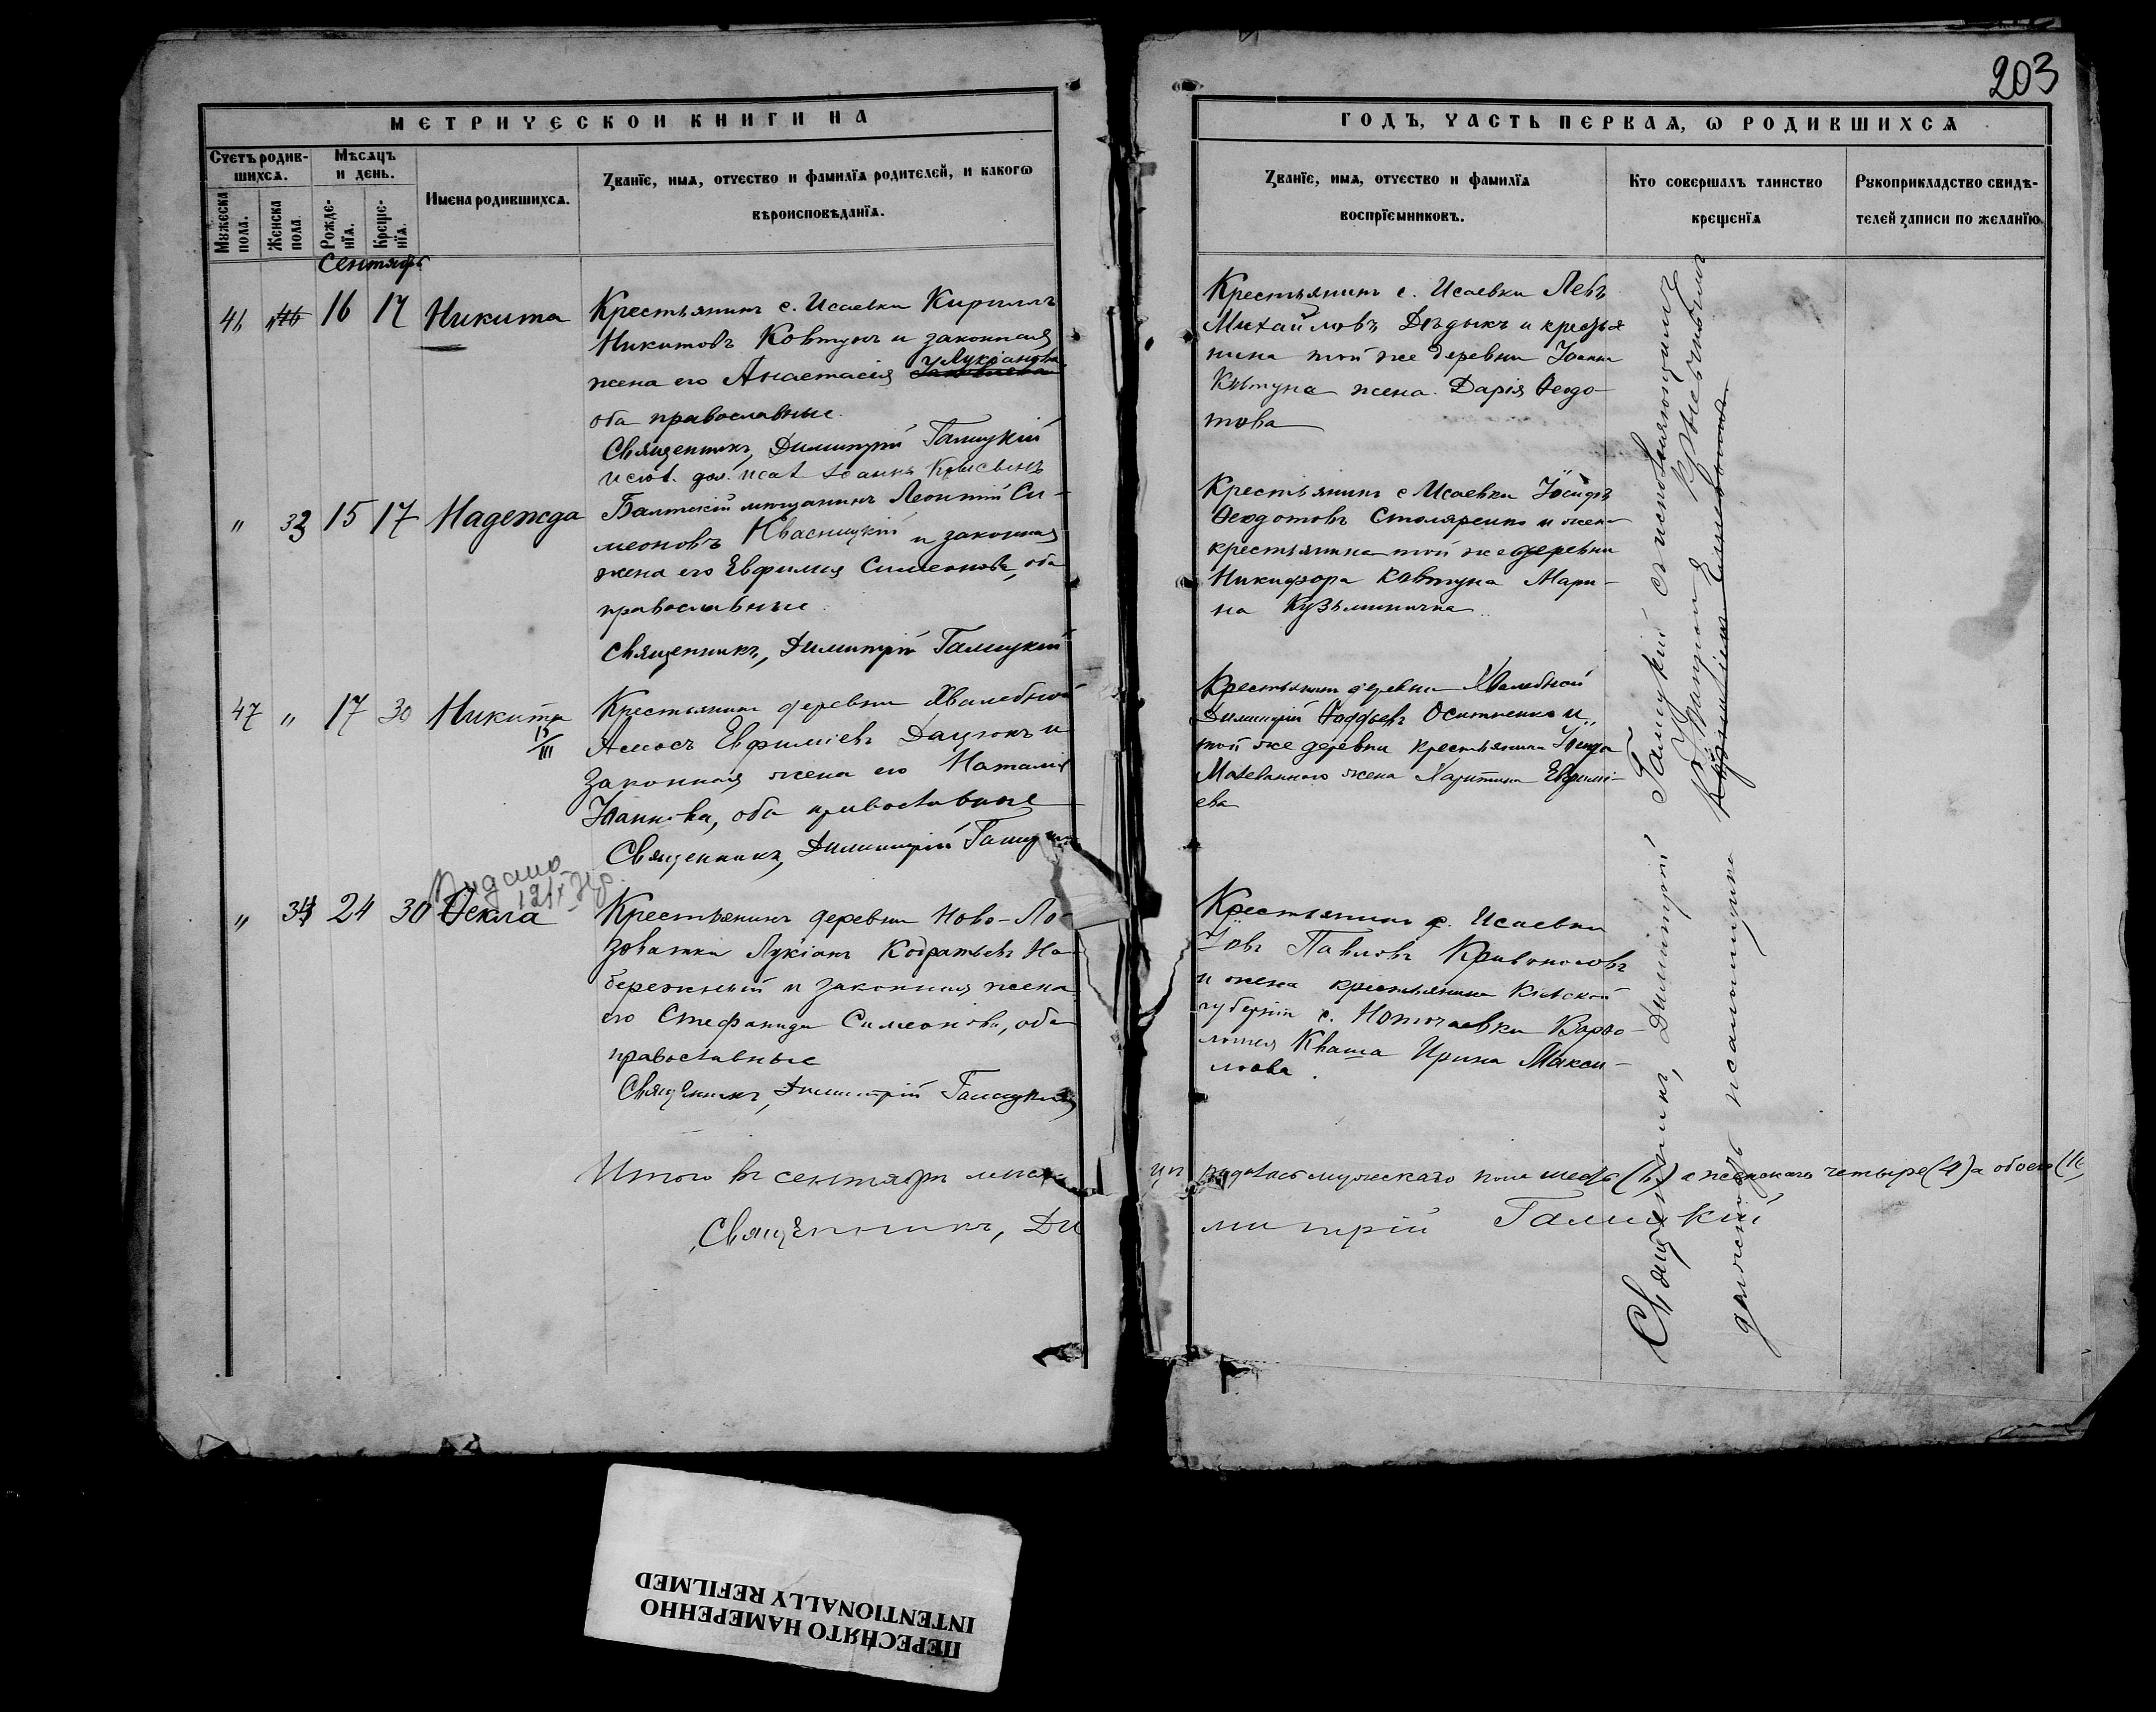 203
МЕТРИЧЕСКОИ КНИГИ НА
ГОДЪ, ЧАСТЬ ПЕРВАЯ, Ѡ РОДИВШИХСЯ
Счетъ родив-
шихся.
Мужеска пола.
Женска пола
Мѣсяцъ
и день.
Рожде-
нїя.
Креще-
нїя.
Имена родившихся.
Званїе, имя, отчество и фамилїя родителей, и какогѡ
вѣроисповѣданїя.
Званїе, имя, отчество и фамилїя
воспрїемниковъ.
Кто совершалъ таинство
крещенїя
Рукоприкладство свидѣ-
телей записи по желанїю
Сентябрь
46 16 17 Никита
Крестьянинъ с. Исаевки Кириллъ
Никитовъ Ковтунъ и законная
Лукіанова
жена его Анастасія
оба православные.
Священникъ, Димитрій Галицкій
Крестьянинъ с. Исаевки Левъ
Михайловъ Дѣдыкъ и крестья
нина той же деревни Іоанна
Ковтуна жена Дарія Ѳеодо-
това
" 33 15 17 Надежда
Балтскій мѣщанинъ Леонтій Си-
меоновъ Квасницкій и законная
жена его Евфимія Симеонова, оба
православные
Священникъ, Димитрій Галицкій
Крестьянинъ с Исаевки Іосифъ
Ѳеодотовъ Столяренко и жена
крестьянина той же деревни
Никифора Ковтуна Мари-
на Кузьминична
47 " 17 30 Никита
15
III
Крестьянинъ деревни Хвалебной
Амосъ Евфиміевъ Дацюкъ и
законная жена его Наталія
Іоаннова, оба православные
Священникъ, Димитрій Галицкій
Крестьянинъ деревни Хвалебной
Димитрій Ѳаддѣевъ Осипенко и
той же деревни крестьянина
жена Харитина Евфимі-
ева
Видано
" 34 24 30 Ѳекла
Крестьянинъ деревни Ново-Ло-
зоватки Лукіанъ Кодратьевъ На-
бережный и законная жена
его Стефанида Симеонова, оба
православные
Священникъ, Димитрій Галицкій
Крестьянинъ с. Исаевки
Іовъ Павловъ Кривоносовъ
и жена крестьянина Кіевской
губерніи с. Варѳо-
ломея Кваша Ирина Макси-
мова.
Итого въ сентябрѣ мѣся
цѣ родилось мужескаго пола шесть (6) а женскаго четыре (4) а обоего (10
Священникъ, Ди
митрій Галицкій
Священникъ, Димитрій Галицкій съ исполняющимъ
должность псаломщика
ПЕРЕСНЯТО НАМЕРЕННО
INTENTIONALLY REFILMED